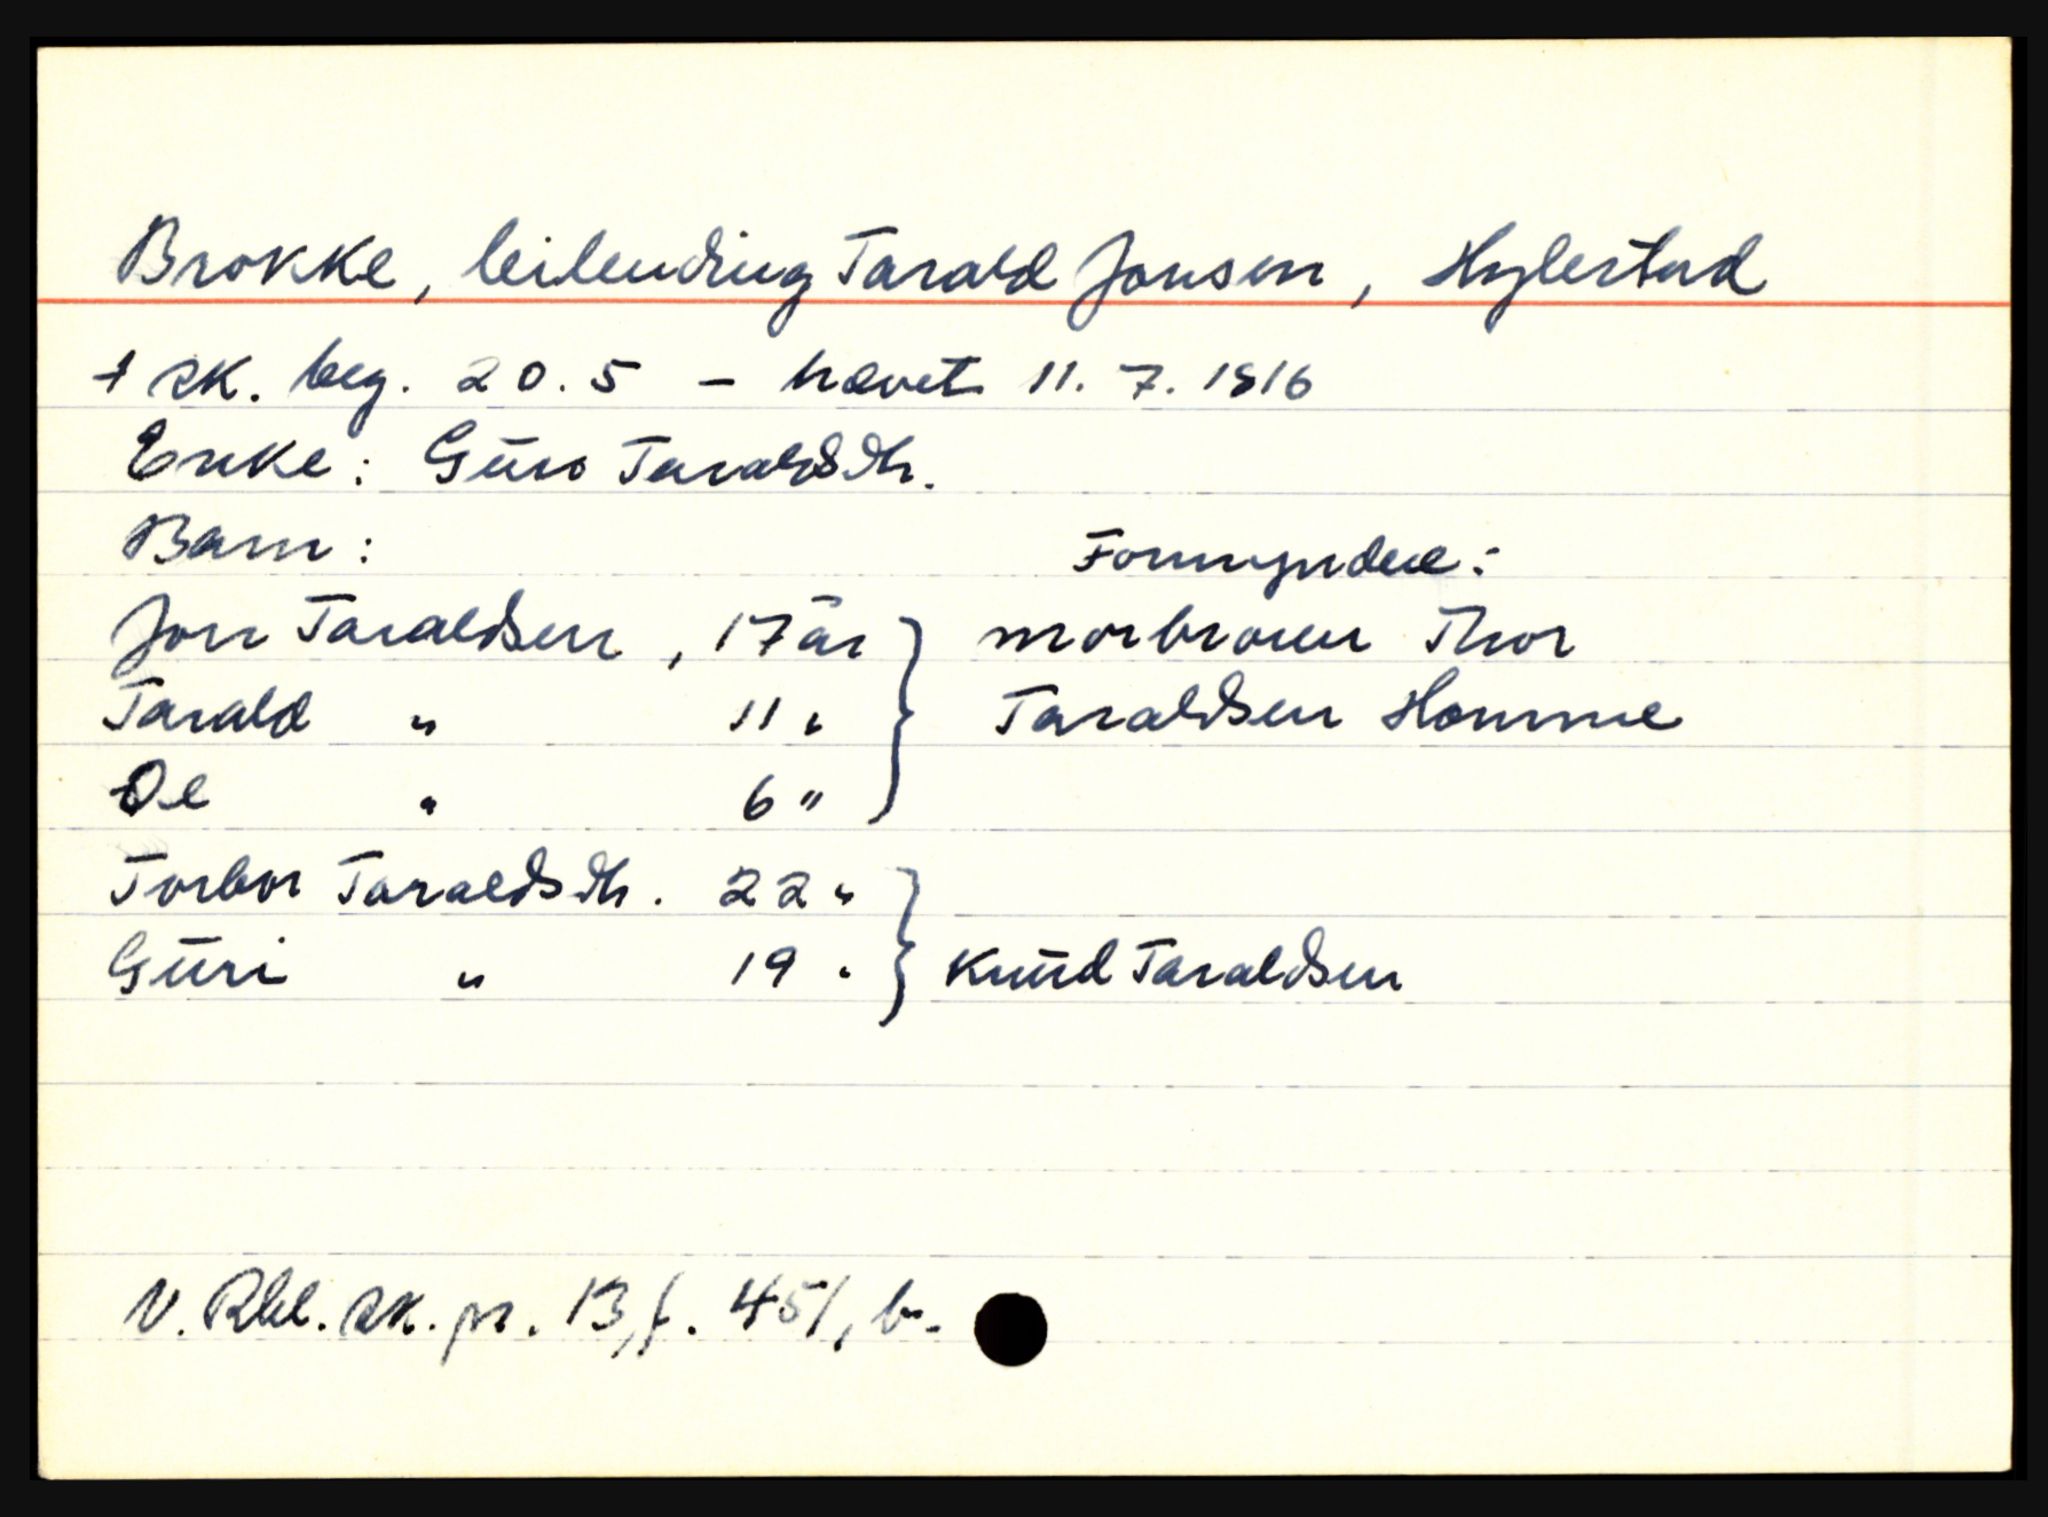 Brokke, leilending Tarald Jonsen, Hylestad
+ sk. beg. 20.5 – hævet 11.7.1816
Enke: Guro Taraldsdtr.
Barn: Formyndere:
Jon Taraldsen, 17 år } morbroren Thor
Tarald " 11 " } Taraldsen Homme
Ole " 6 " }
Torbor Taraldsdtr. 22 " }
Guri " 19 " } Knud Taraldsen
V. Rbl. sk. pr. 13, f. 451, b.